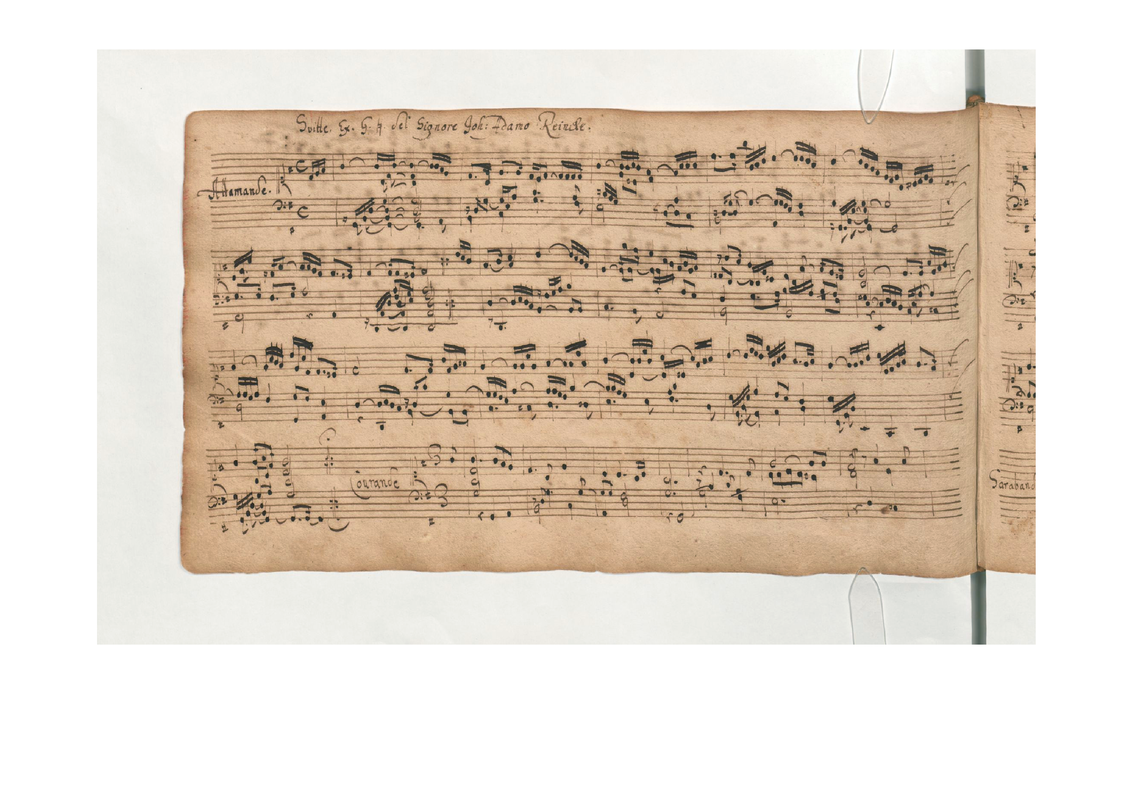 Suitte. Ex. G. ♮. del Signore Joh: Adamo Reincke.
Allamande.
Courande
Saraband